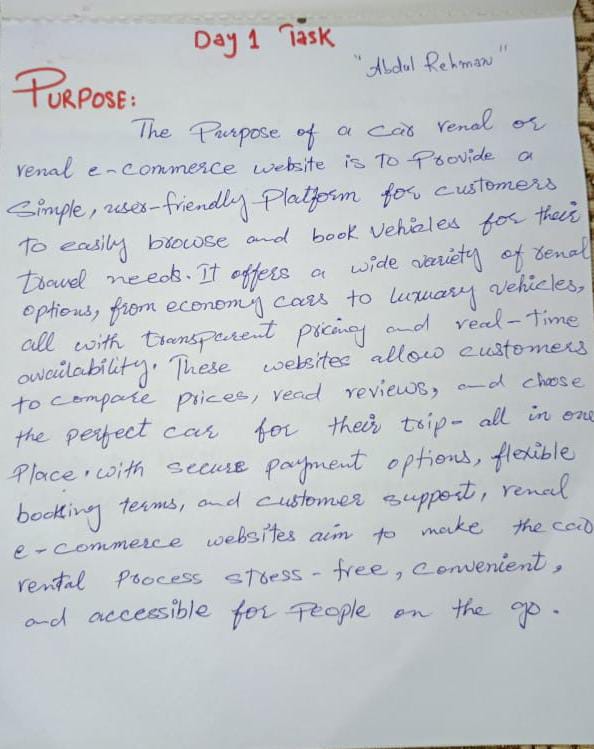 Day 1 Task
"Abdul Rehman"
PURPOSE:
The Purpose of a car renal or
renal e-commerce website is To Provide a
Simple, user-friendly Platform for customers
to easily browse and book vehicles for their
travel needs. It offers a wide variety of renal
options, from economy cars to luxuary vehicles,
all with transparent pricing and real-time
availability. These websites allow customers
to compare prices, read reviews, and choose
the perfect car for their trip- all in one
Place. with secure payment options, flexible
booking terms, and customer support, renal
e-commerce websites aim to make the car
rental Process stress-free, convenient,
and accessible for People on the go.